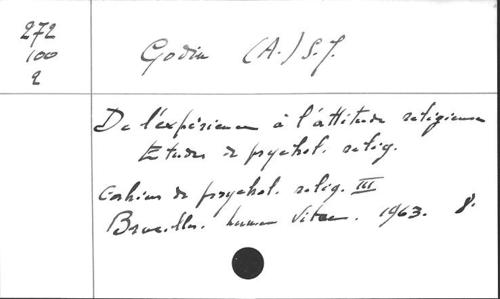 272
100
2
Godin (A.) S.J.
De l'expérience à l'attitude religieuse
Etudes de psychol. relig.
Cahiers de psychol. relig. III
Bruxelles. Lumen Vitae. 1963. 8.